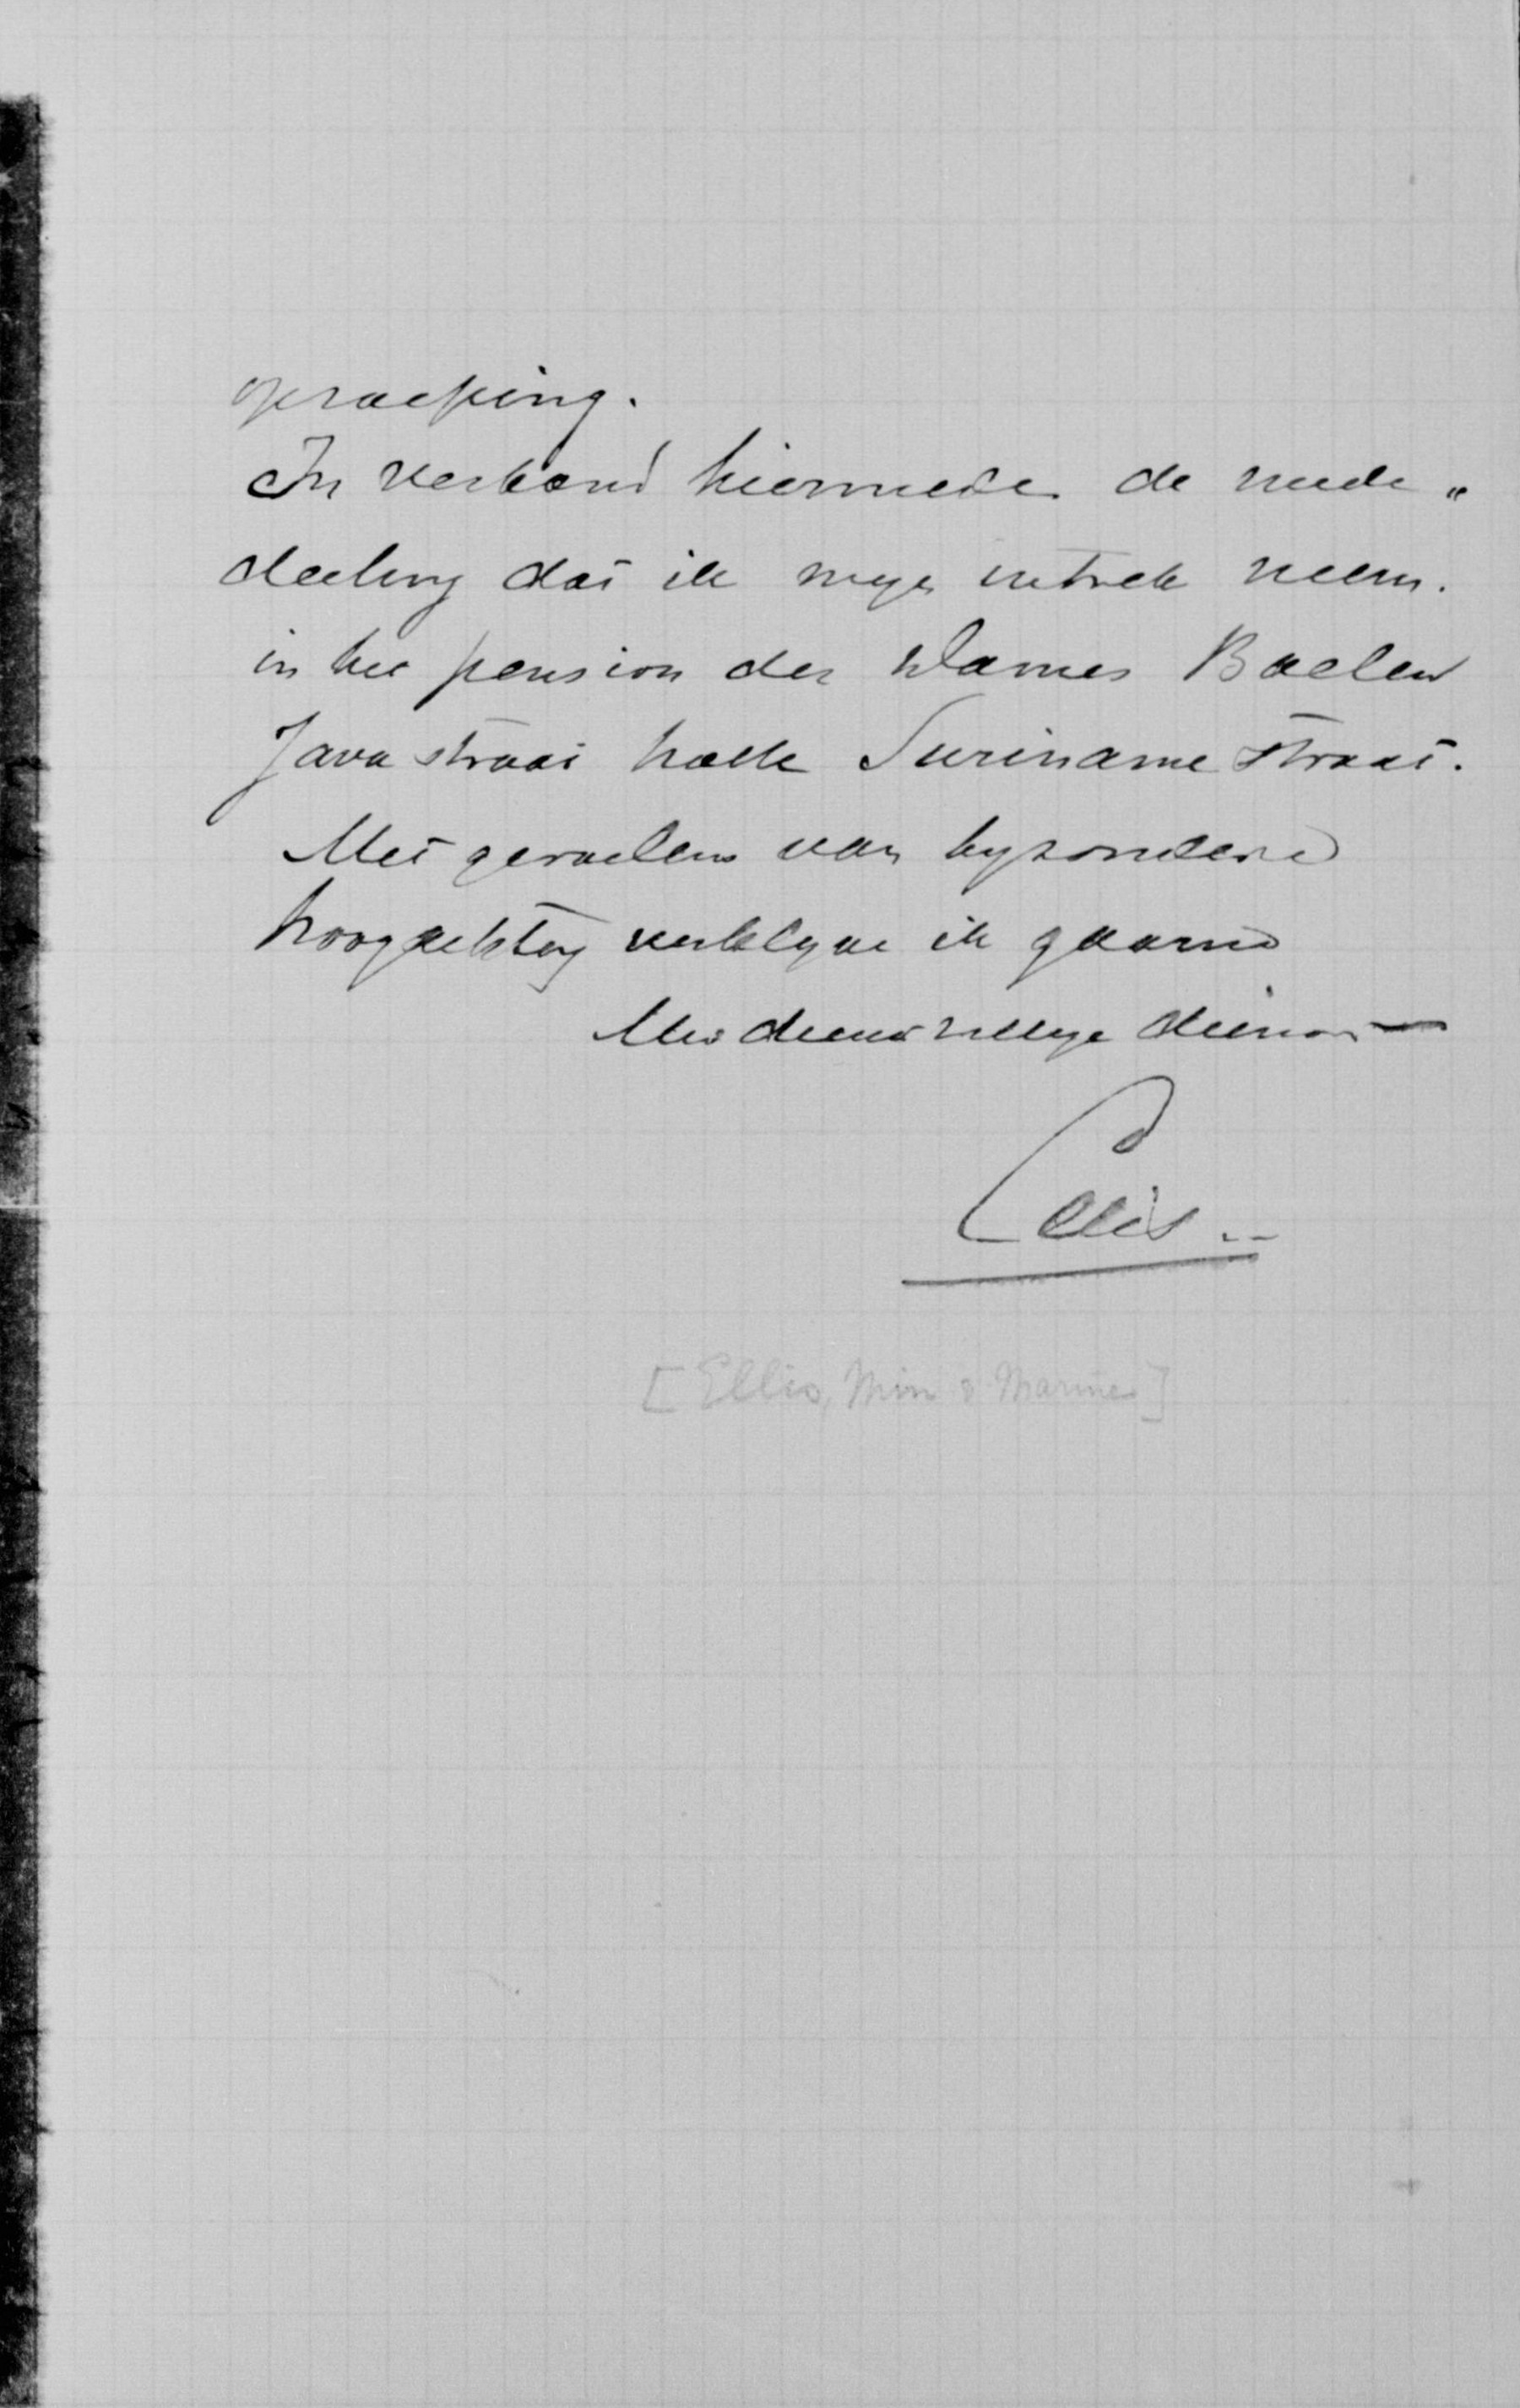 oproeping.
In verband hiermede de mede„
deeling dat ik mijn intrek neem.
in het pension der Dames Baelen
Java straat hoek Suriname straat.
Met gevoelens van byzondere
hoogachting verblyve ik gaarne
Uw dienstwillige dienaar
Ellis..
[Ellis, Min v Marine]